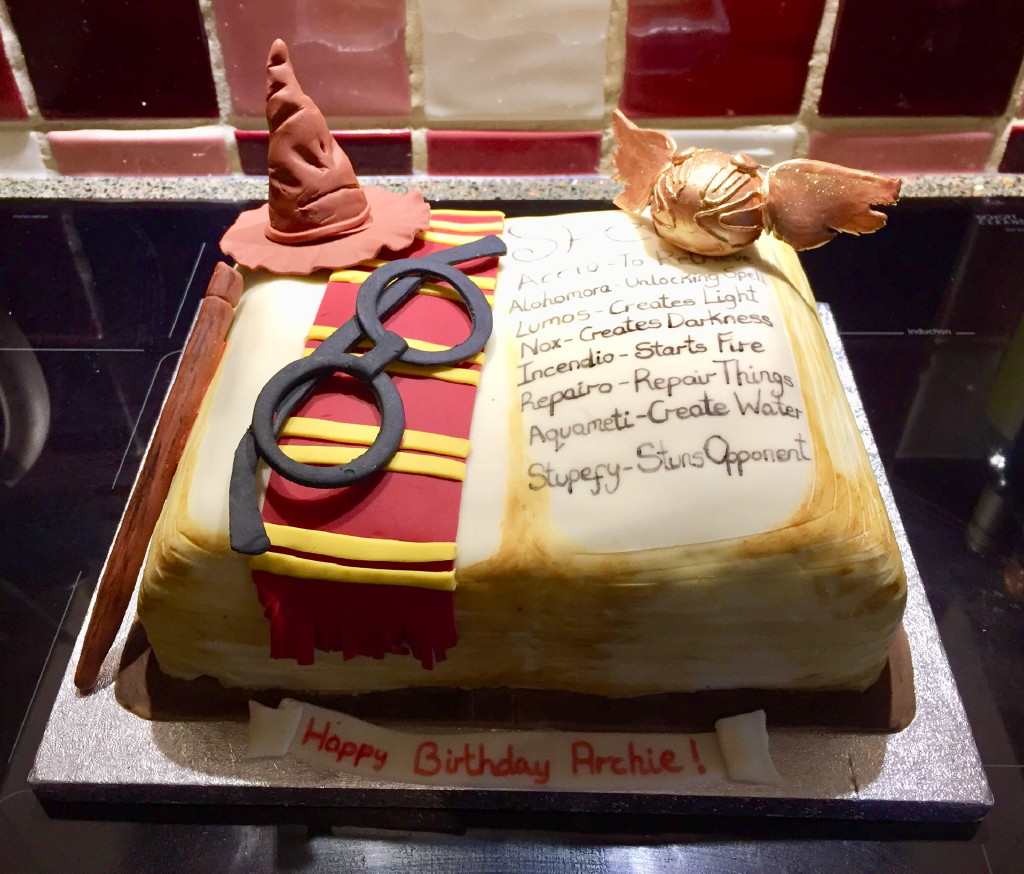 Accio - To
Alohomora - Unlocking Spell
Lumos - Creates Light
Nox - Creates Darkness
Incendio - Starts Fire
Repairo - Repair Things
Aquameti - Create Water
Stupefy - Stuns Opponent
Happy Birthday Archie!
induction